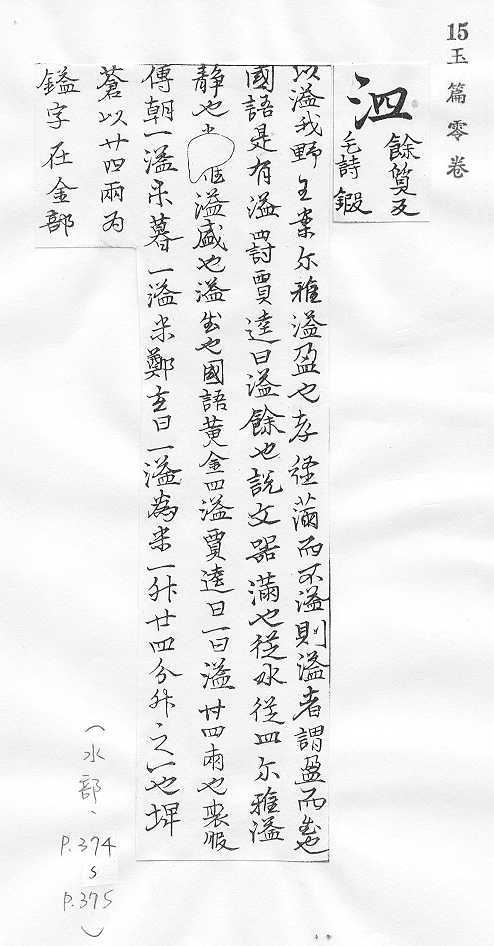 15
玉篇零卷
泗
餘質反
毛詩嘏
以溢我野王案尓雅溢盈也孝経滿而不溢則溢者謂盈而出也
國語是有溢罰賈逵曰溢餘也說文器滿也從水從皿尓雅溢
静也溢盛也溢出也國語黄金四溢賈逵曰一曰溢廿四兩也喪服
傳朝一溢米暮一溢米鄭玄曰一溢為米一升廿四分升之一也埤
蒼以廿四兩为
鎰字在金部
(水部、
P.374
S
P.375
)